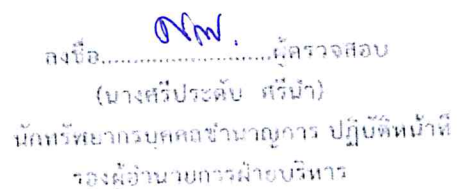 ลงชื่อ...........................ผู้ตรวจสอบ
(นางศรีประดับ ศรีนำ)
นักทรัพยากรบุคคลชำนาญการ ปฏิบัติหน้าที่
รองผู้อำนวยการฝ่ายบริหาร